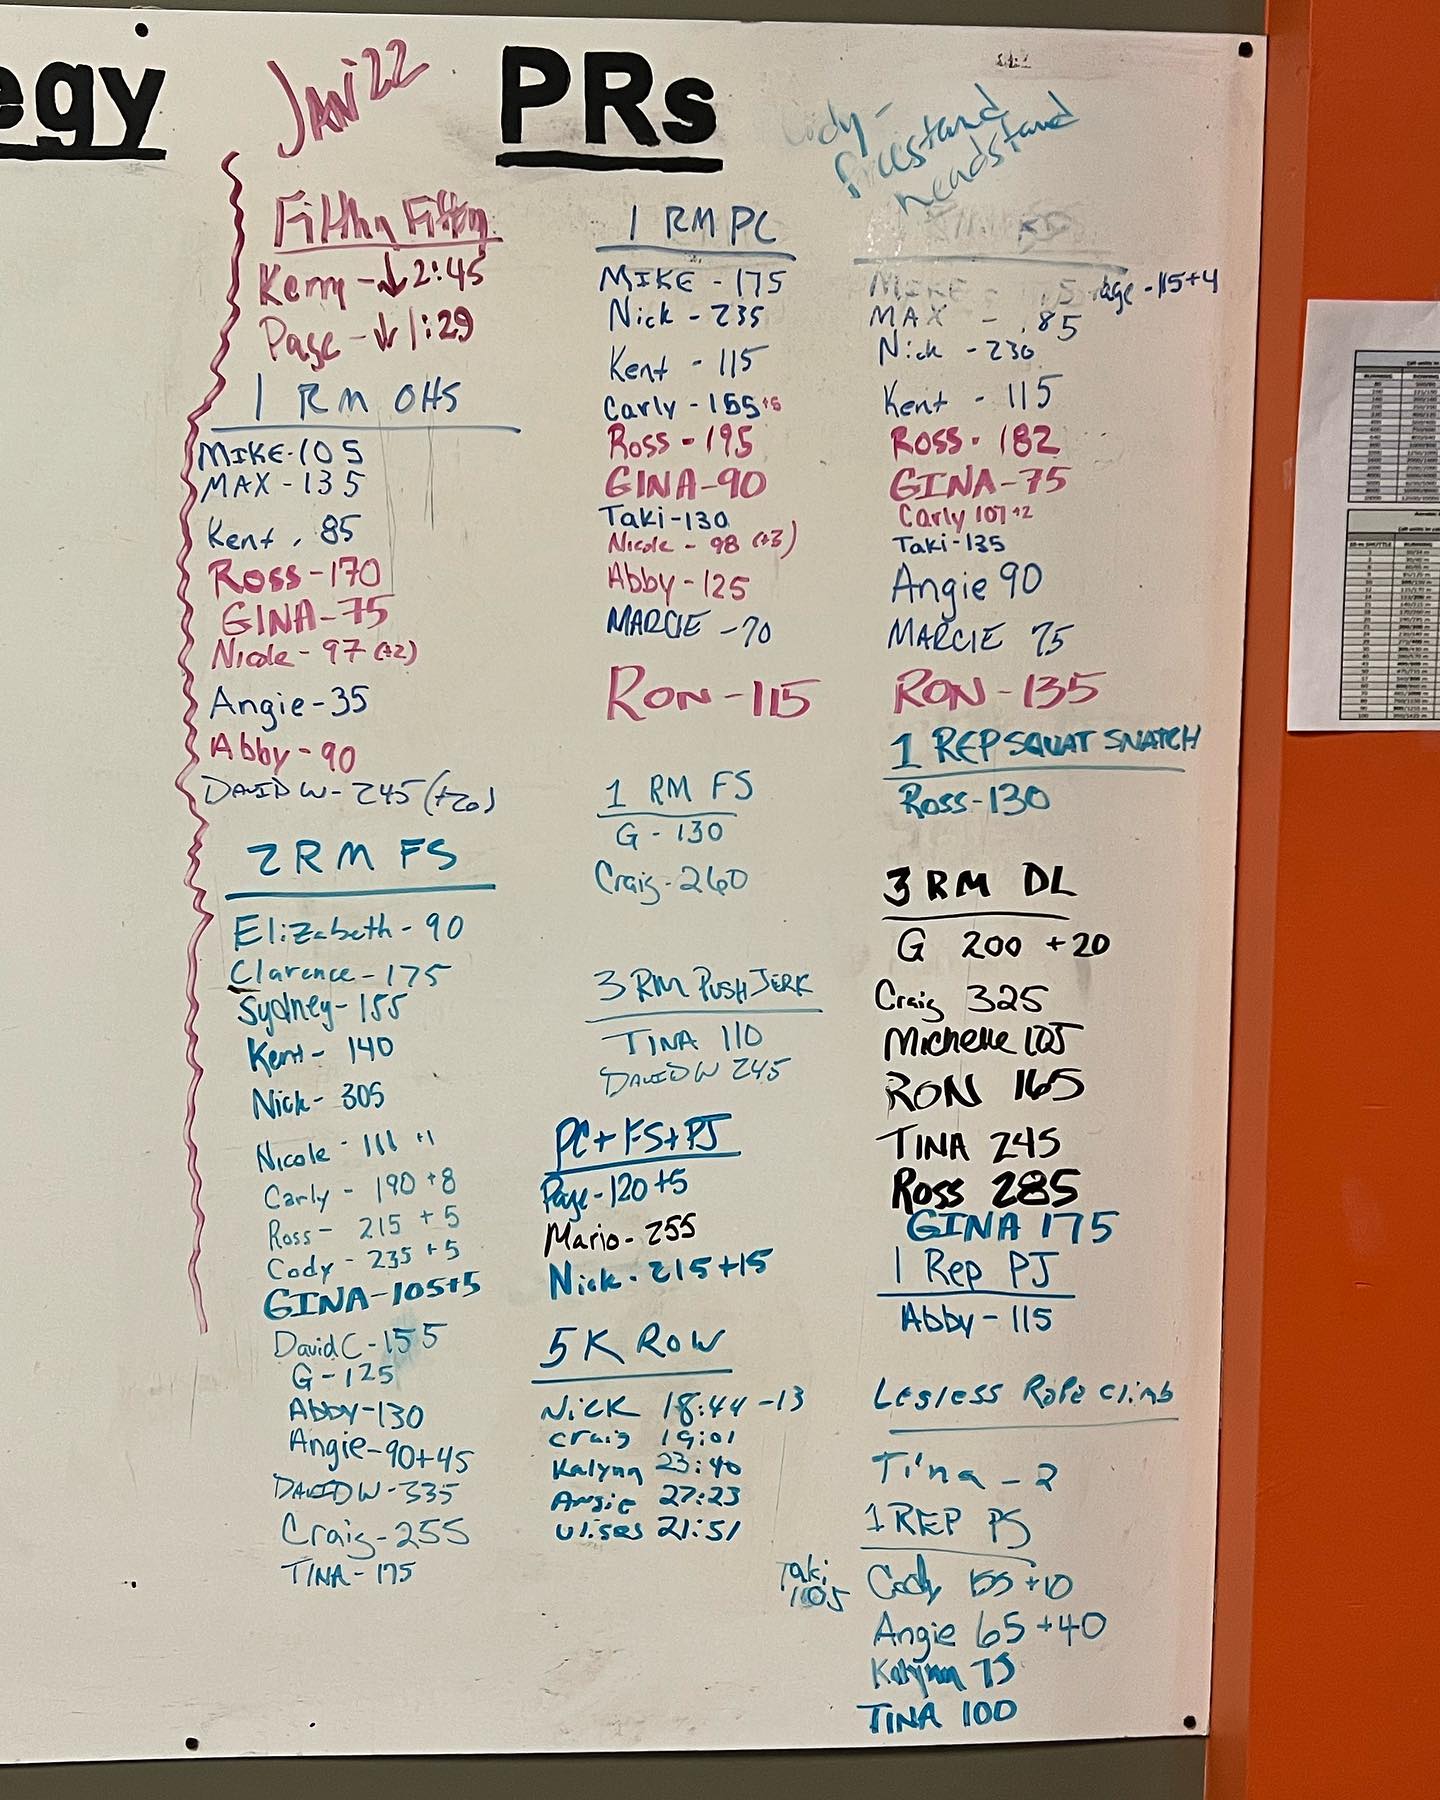 egy
JAN 22
PRs
freestand
headstand
Filthy Fifty
Kerry - ↓ 2:45
Page - ↓ 1:29
1 RM OHS
MIKE - 105
MAX - 135
Kent . 85
Ross - 170
GINA - 75
Nicole - 97 (+2)
Angie - 35
Abby - 90
DAVID W - 245 (+20)
2 RM FS
Elizabeth - 90
Clarence - 175
Sydney - 155
Kent - 140
Nick - 305
Nicole - 111 +1
Carly - 190 +8
Ross - 215 +5
Cody - 235 +5
GINA - 105+5
David C - 155
G - 125
Abby - 130
Angie - 90+45
DAVID W - 335
Craig - 255
TINA - 175
1 RM PC
MIKE - 175
Nick - 235
Kent - 115
Carly - 155 +5
Ross - 195
GINA - 90
Taki - 130
Nicole - 98 (+3)
Abby - 125
MARCIE - 70
RON - 115
1 RM FS
G - 130
Craig - 260
3 RM PUSH JERK
TINA 110
DAVID W 245
PC + FS + PJ
Page - 120 +5
Mario - 255
Nick - 215 +15
5K ROW
NICK 18:44 -13
Craig 19:01
Kalynn 23:40
Angie 27:23
Ulises 21:51
MIKE
Page - 115+4
MAX - 85
Nick - 230
Kent - 115
Ross - 182
GINA - 75
Carly 107 +2
Taki - 135
Angie 90
MARCIE 75
RON - 135
1 REP SQUAT SNATCH
Ross - 130
3 RM DL
G 200 +20
Craig 325
Michelle 105
RON 165
TINA 245
Ross 285
GINA 175
1 Rep PJ
Abby - 115
Legless Rope climb
Tina - 2
1 REP PS
Taki 105
Cody 155 +10
Angie 65 +40
Kalynn 75
TINA 100